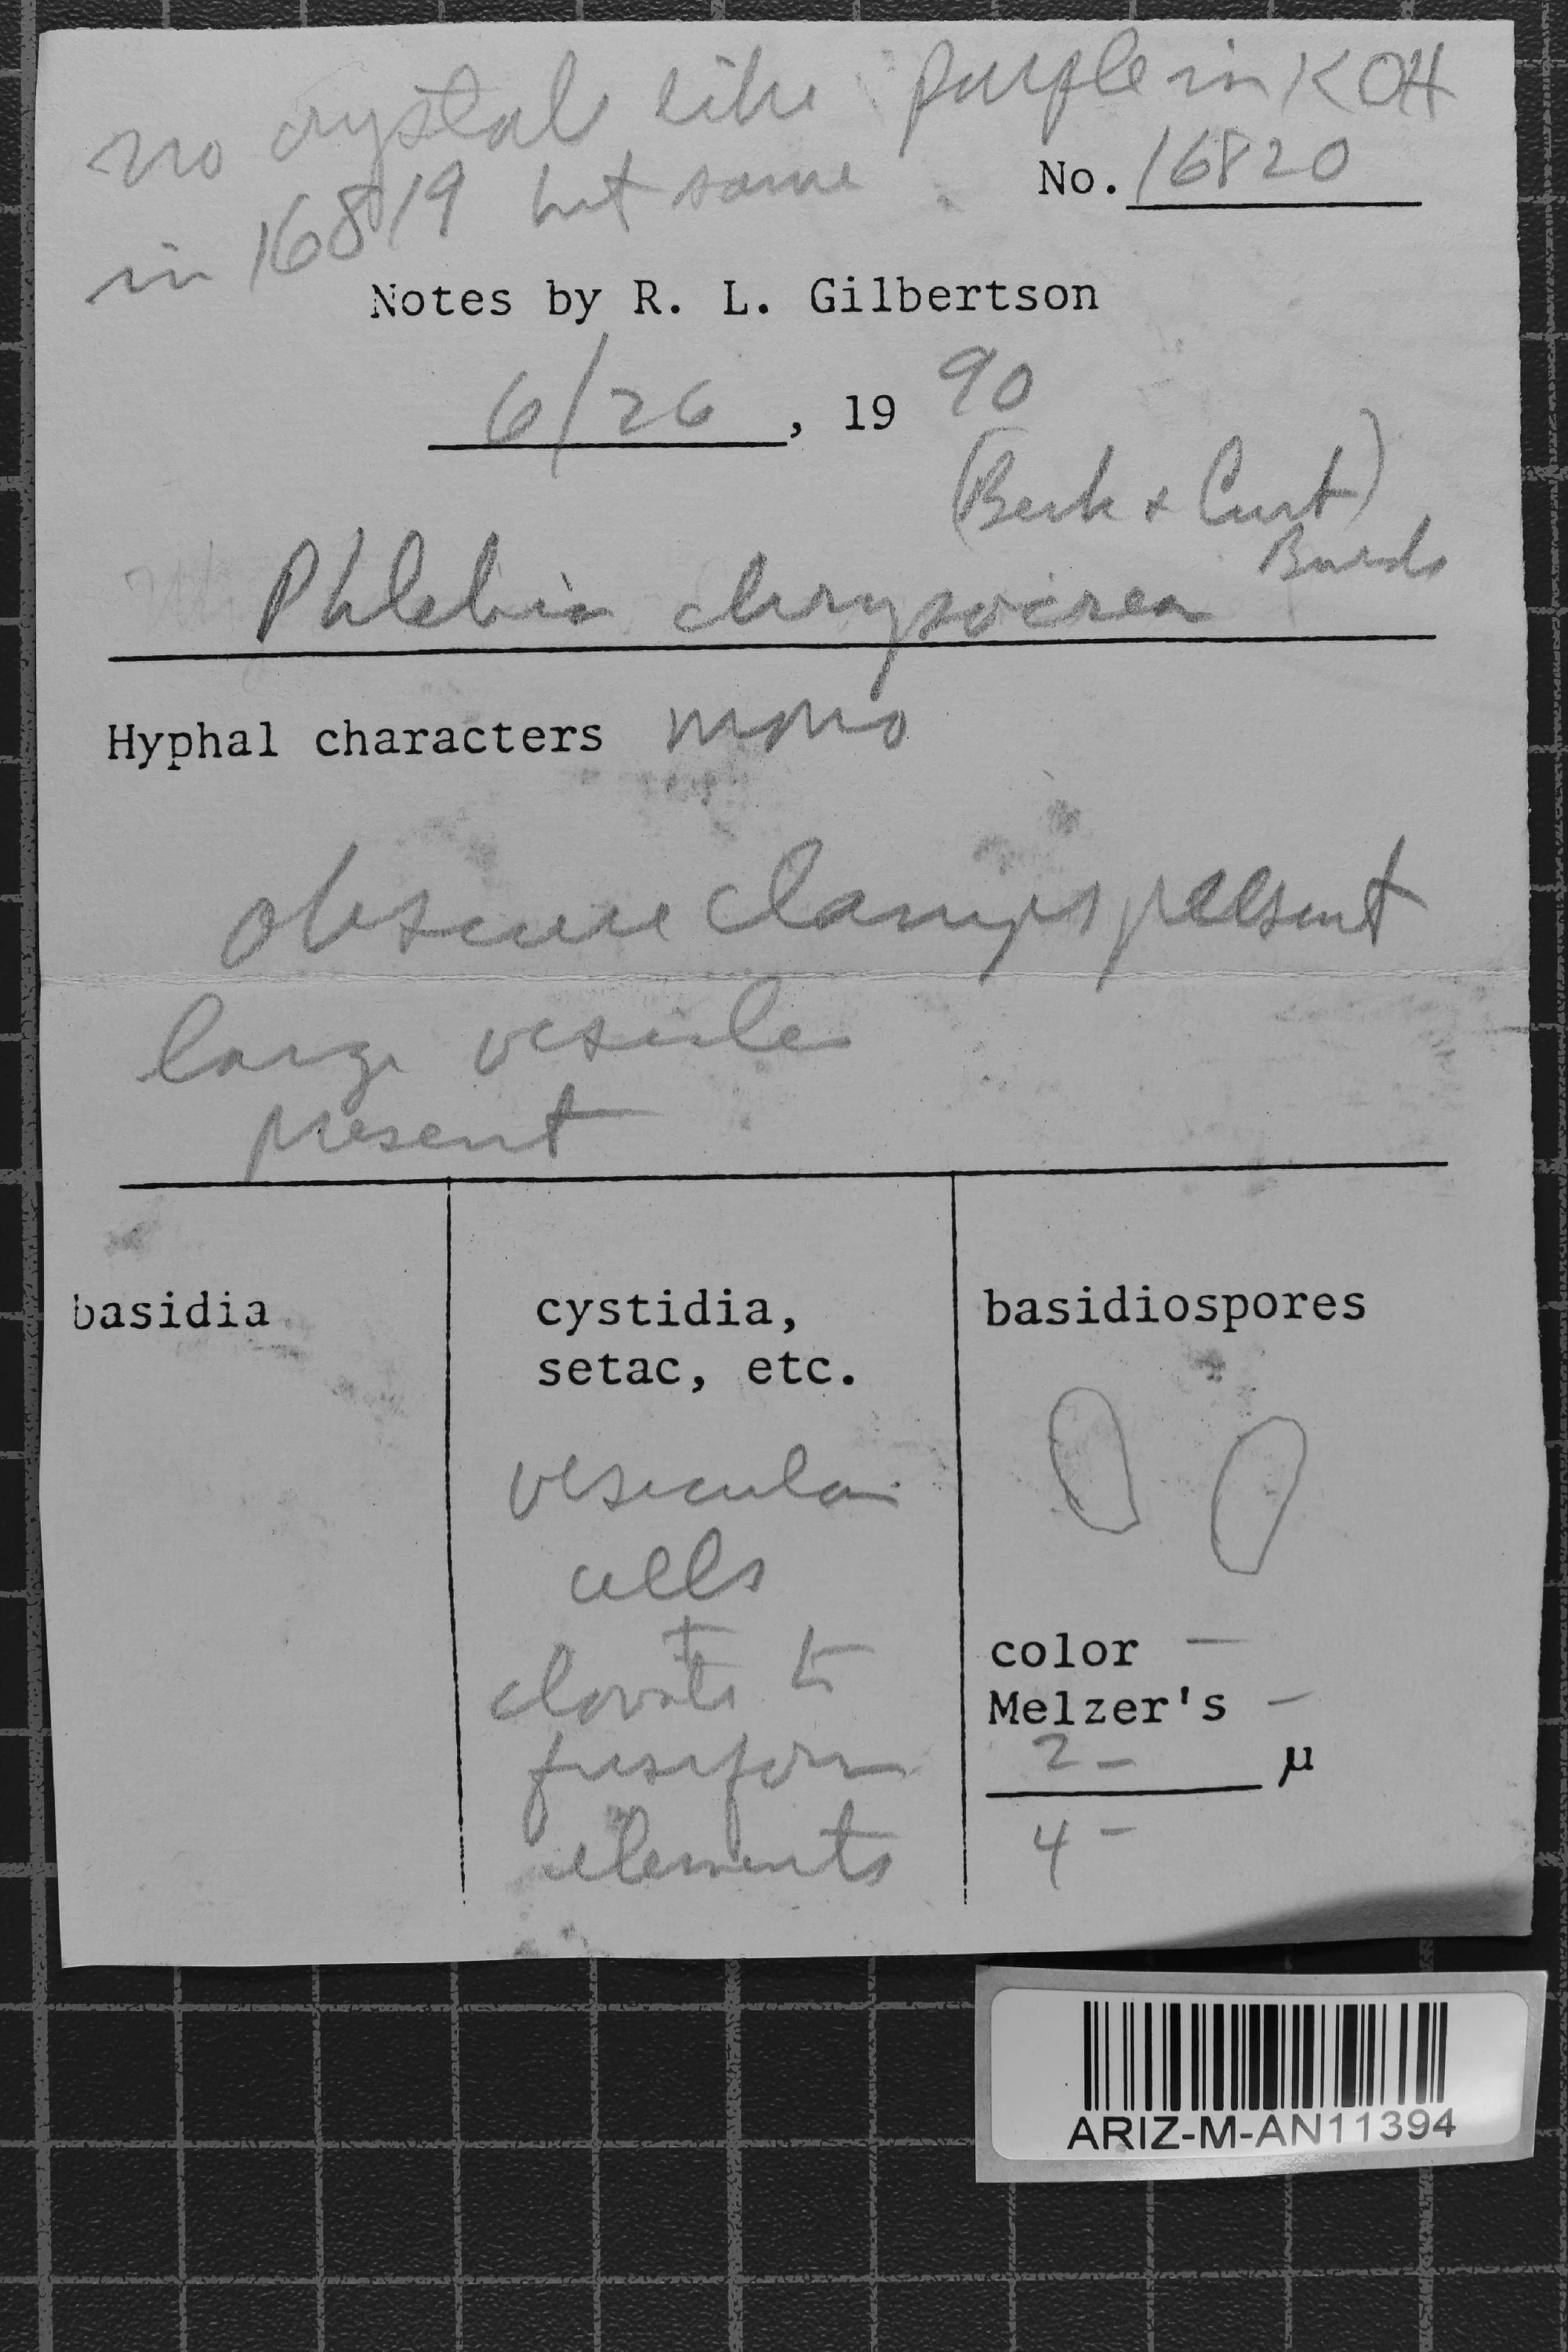 no crystals like purple in KOH
in 16819 but same
No. 16820
Notes by R. L. Gilbertson
6/26, 19 90
(Berk & Curt)
Burds
Phlebia chrysocrea
Hyphal characters mono
obscure clamps present
large vesicles
present
basidia
cystidia,
setac, etc.
vesicular
cells
±
clavate to
fusiform
elements
basidiospores
color —
Melzer's —
2 – µ
4 –
ARIZ-M-AN11394